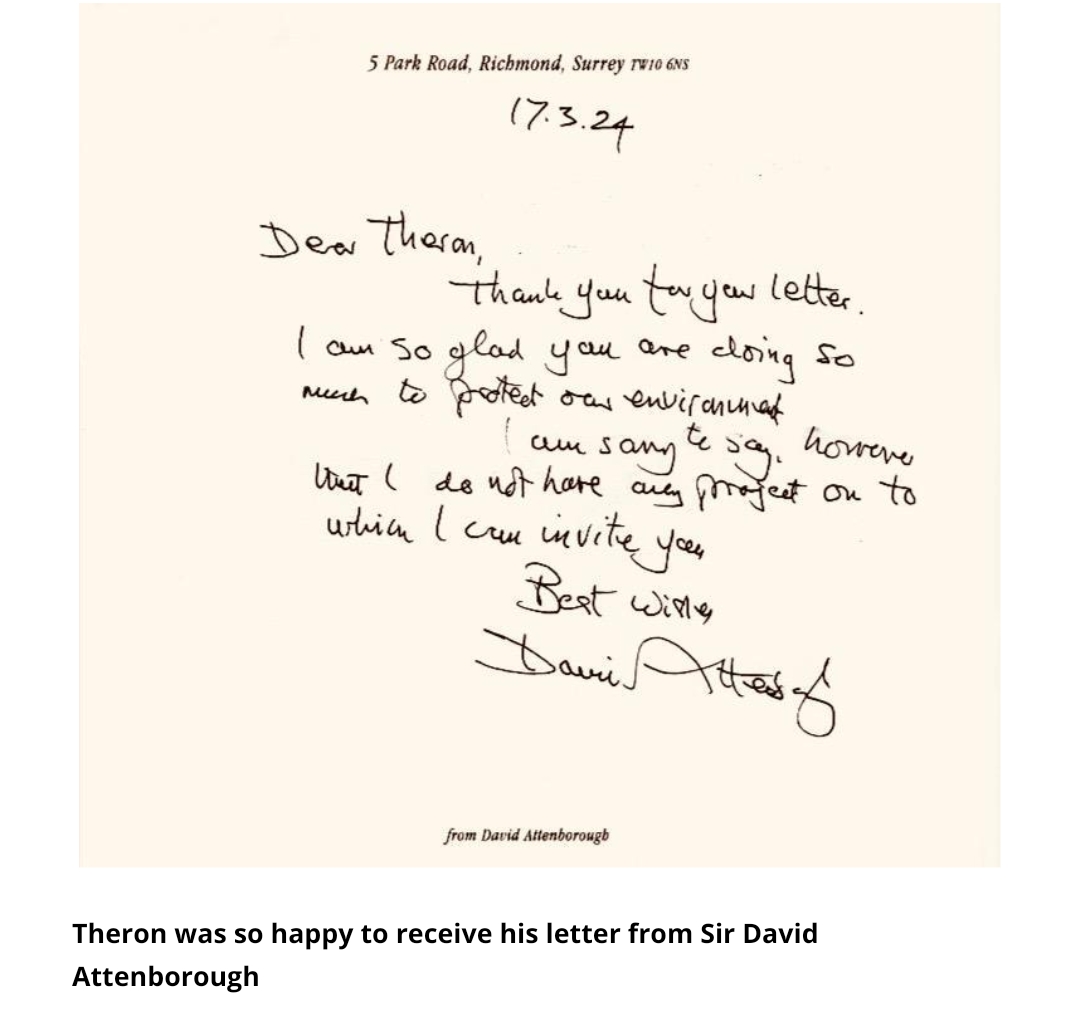 5 Park Road, Richmond, Surrey TW10 6NS
17.3.24
Dear Theron,
Thank you for your letter.
I am so glad you are doing so
much to protect our environment
I am sorry to say, however
that I do not have any project on to
which I can invite you
Best wishes
David Attenborough
from David Attenborough
Theron was so happy to receive his letter from Sir David
Attenborough